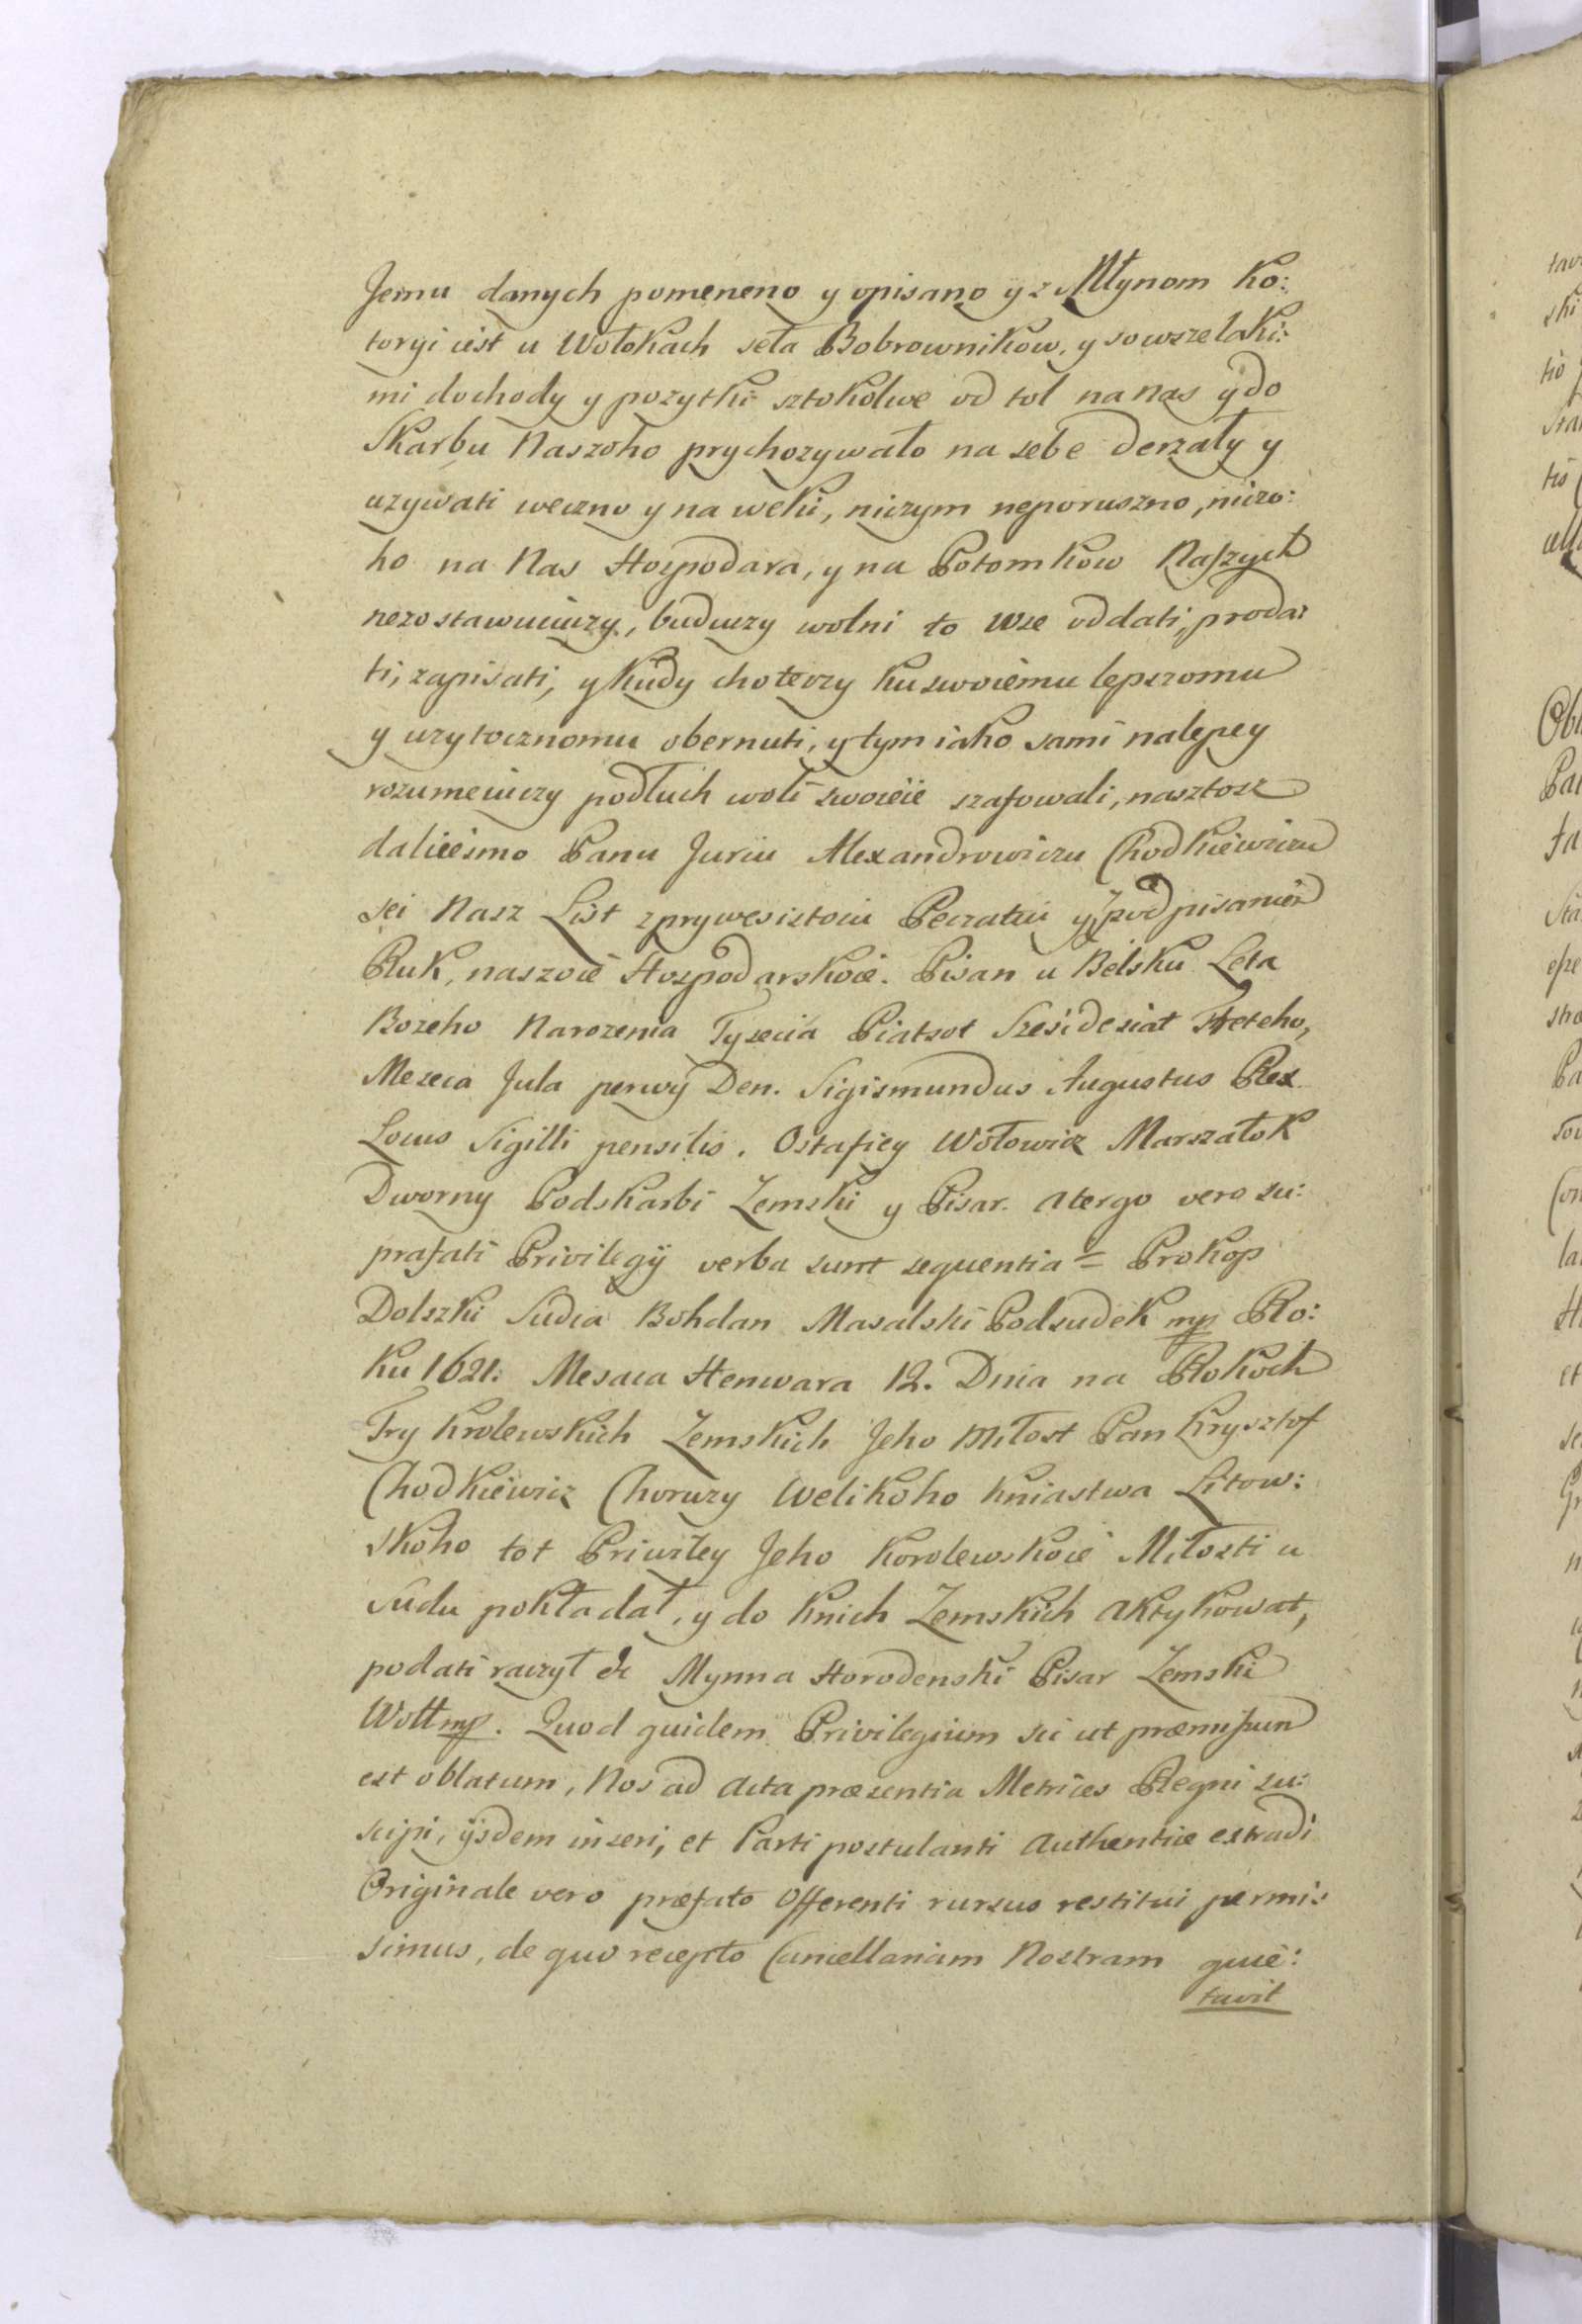 Jemu danych pomeneno y opisano y z Młynom Ko:
toryi iest u Wołokach seła Bobrownikow, y sowszelaki:
mi dochody y pozytki sztokolwe od tol na nas y do
Skarbu Naszoho prychozywało na sebe derzaty y
uzywati weczno y na weki, niczym neporuszno, niczo:
ho na Nas Hospodara, y na Potomkow Naszych
nezostawuiuczy, buduczy wolni to wse oddati, proda:
ti, zapisati, y Kudy choteczy ku swoiemu lepszomu
y uzytocznomu obernuti, y tym iako sami nalepey
rozumeiuczy podłuch woli swoieie szafowali, nasztosz
daliiesmo Panu Juriu Alexandrowiczu Chodkiewiczu
sei Nasz List z prywesistoiu Peczatiu y z podpisaniem
Ruk, naszoie Hospodarskoie. Pisan u Belsku Leta
Bozeho Narozenia Tysecia Piatsot Szesidesiat Treteho,
Meseca Jula perwy Den. Sigismundus Augustus Rex
Locus Sigilli pensilis. Ostafiey Wołowicz Marszałok
Dworny Podskarbi Zemski y Pisar. Atergo vero su:
prafati Privilegij verba sunt sequentia = Prokop
Dolszki Sudia Bohdan Masalski Podsudek mp Ro:
ku 1621: Mesaca Henwara 12. Dnia na Rokoch
Try Krolewskich Zemskich Jeho Miłost Pan Krysztof
Chodkiewicz Choruzy Welikoho Kniastwa Litow:
skoho tot Priwiley Jeho Korolewskoie Miłosti u
Sudu pokładał, y do Knich Zemskich Aktykowat,
podati raczył &c Mynna Horodenski Pisar Zemski
Wołł mp. Quod quidem Privilegium sic ut præmissum
est oblatum, Nos ad Acta præsentia Metrices Regni su:
scipi, ijsdem inseri, et Parti postulanti Authentice extradi
Originale vero præfato Offerenti rursus restitui permi:
simus, de quo recepto Cancellariam Nostram quie:
tavit